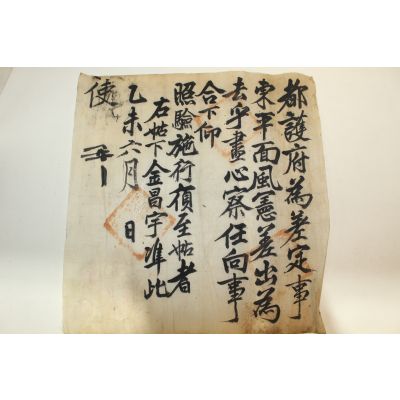 都護府為差定事
東平面風憲差出為
去乎盡心察任向事
合下仰
照驗施行須至帖者
右帖下金昌宇準此
乙未六月 日
使